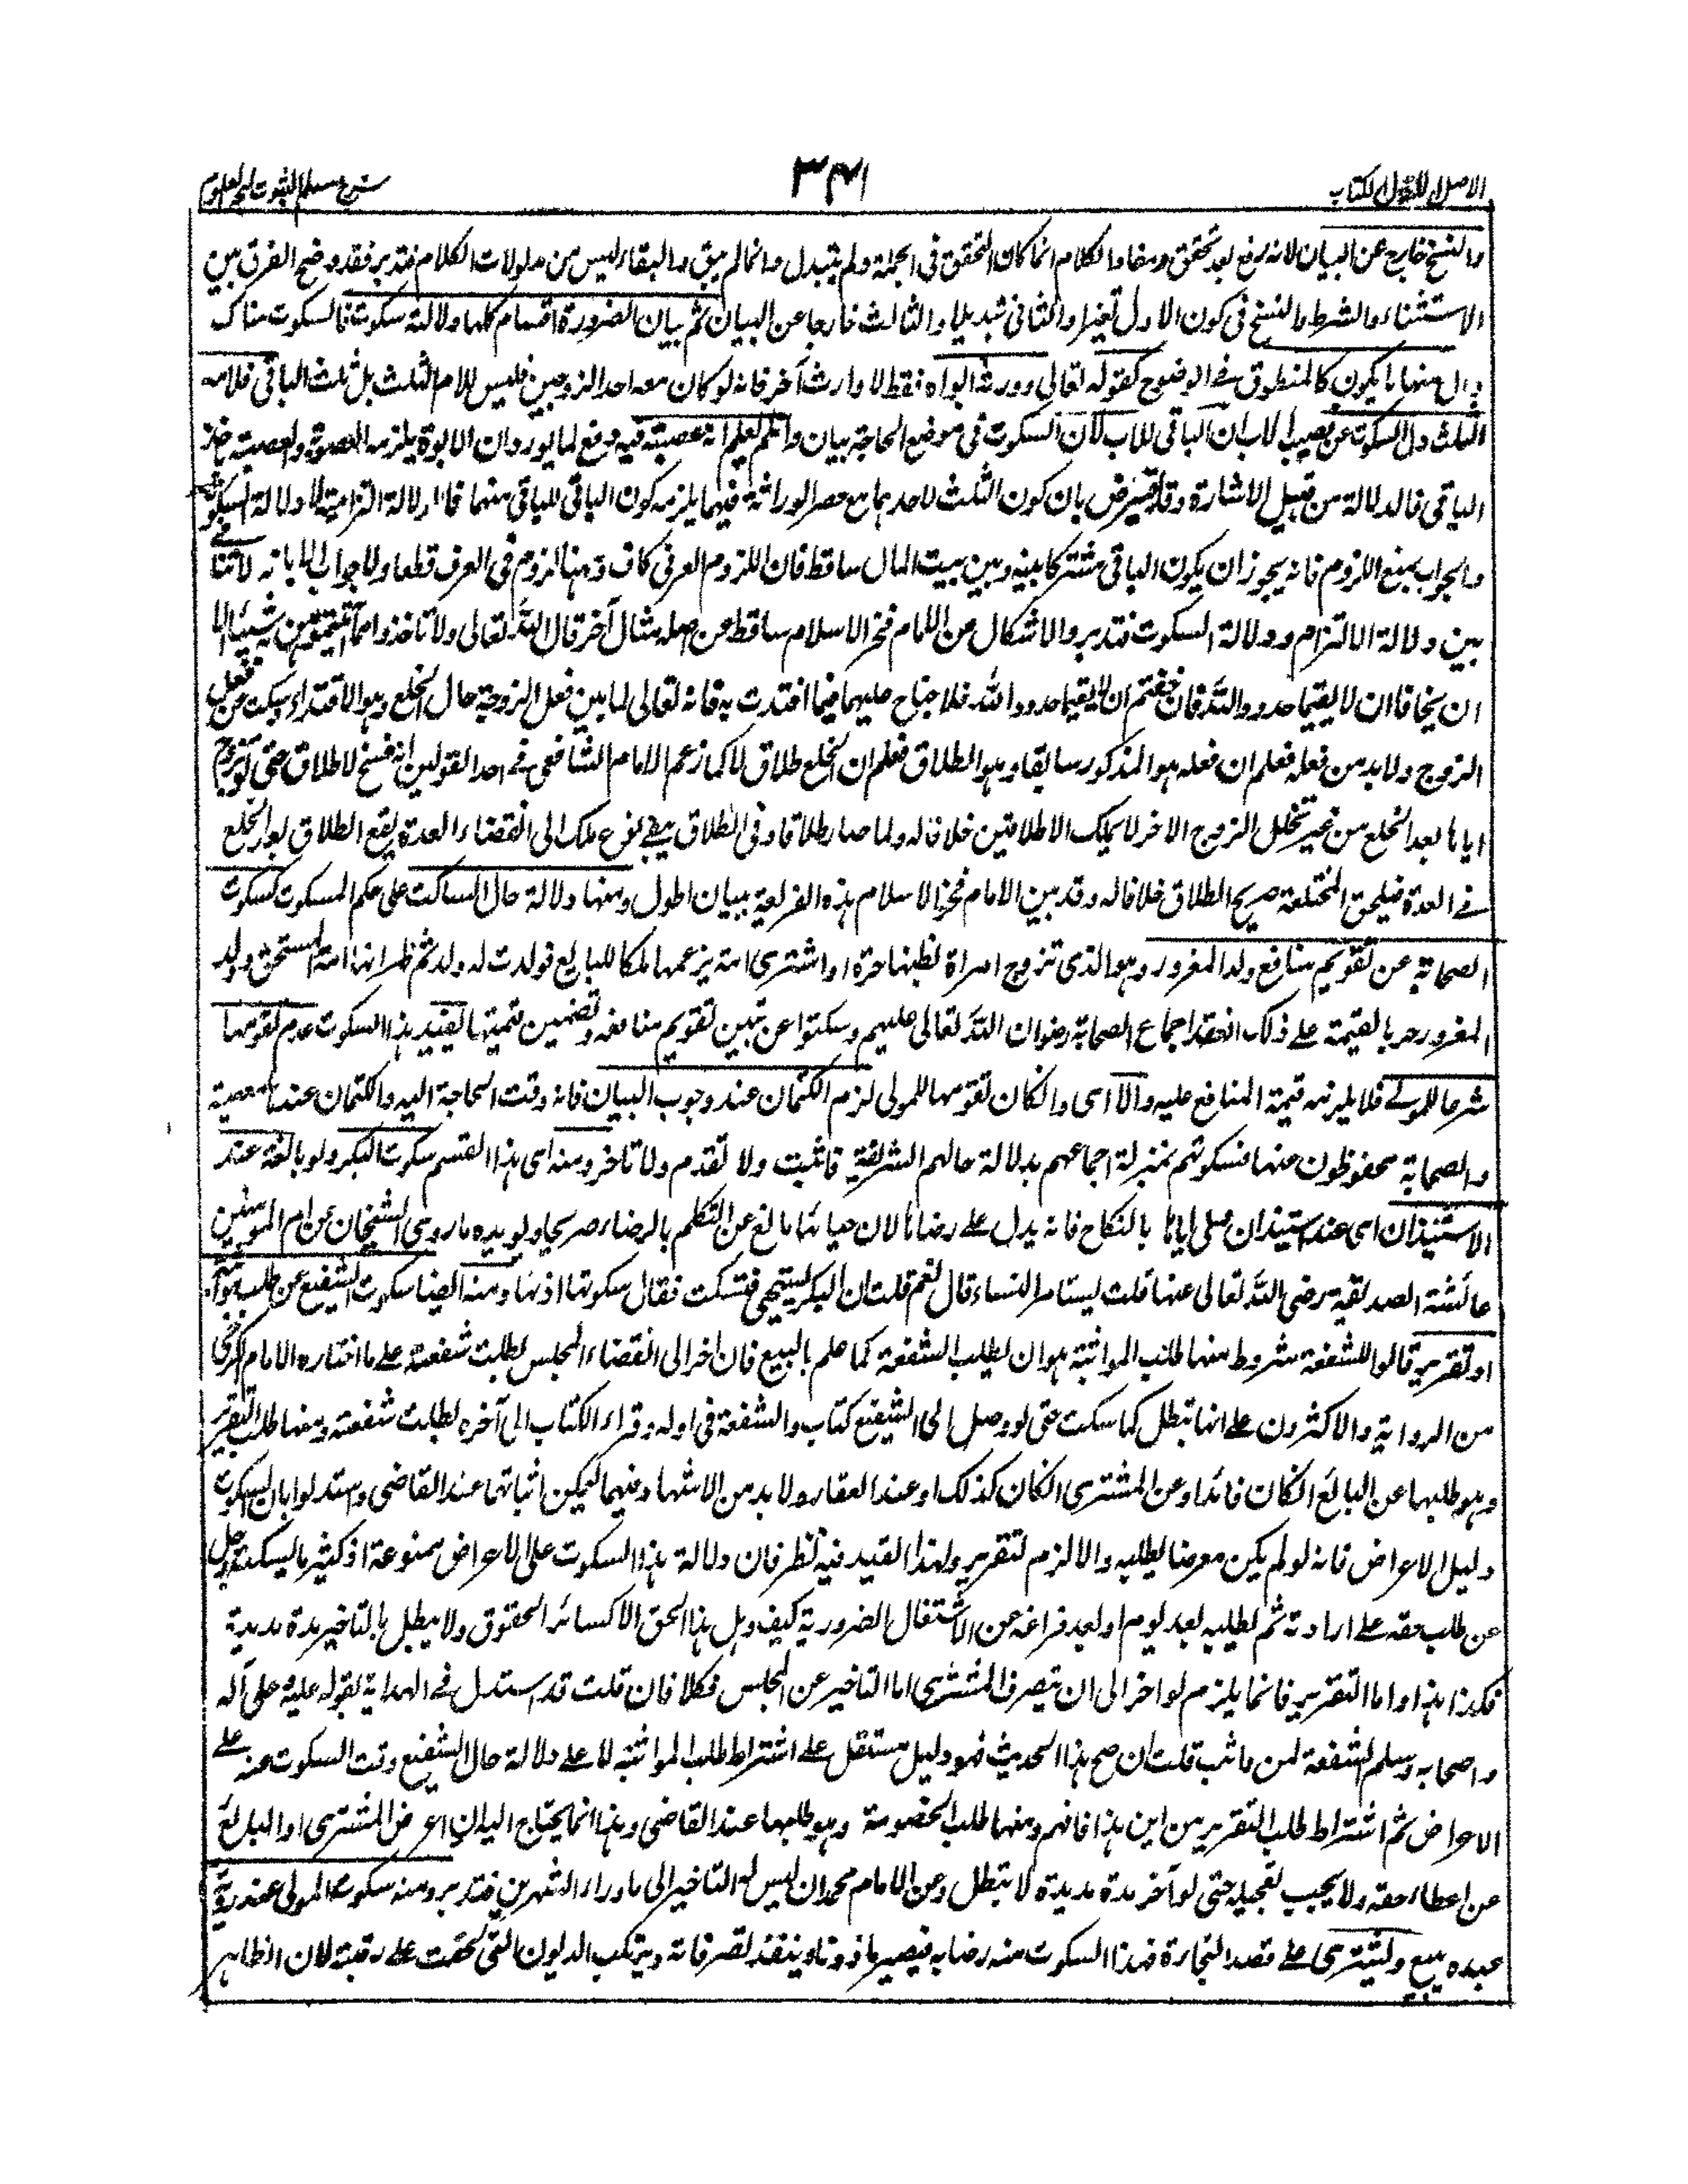 الاصل الاول الكتاب
٣٤١
شرح مسلم الثبوت لبحر العلوم
والنسخ خارج عن البيان لانه رفع بعد تحقق ومفاد الكلام انما كان التحقق فى الجملة ولم يتبدل وانما لم يبق والبقاء ليس من مدلولات الكلام فتدبر فقد وضح الفرق بين
الاستثناء والشرط والنسخ فى كون الاول تغييرا والثانى تبديلا والثالث خارجا عن البيان ثم بيان الضرورة اقسام كلها دلالة سكوت فالسكوت هناك
دال منها ما يكون كالمنطوق فى الوضوح كقوله تعالى وورثه ابواه فقط لا وارث آخر فانه لو كان معه احد الزوجين فليس للام الثلث بل ثلث الباقى فلامه
الثلث دل السكوت عن نصيب الاب ان الباقى للاب لان السكوت فى موضع الحاجة بيان وان لم يعلم انه عصبة فيه دفع لما يورد ان الابوة يلزمه العصوبة والعصبة
الباقى فالدلالة من قبيل الاشارة وقد يعترض بان كون الثلث لاحدهما مع حصر الوراثة فيهما يلزمه كون الباقى للباقى منهما فالدلالة التزامية لا دلالة السكوت
والجواب بمنع اللزوم فانه يجوز ان يكون الباقى مشتركا بينه وبين بيت المال ساقط فان اللزوم العرفى كاف وههنا لزوم فى العرف قطعا ولا جواب الا بانه لا تنافى
بين دلالة الالتزام ودلالة السكوت فتدبر والاشكال من الامام فخر الاسلام ساقط عن اصله مثال آخر قال الله تعالى ولا تاخذوا مما آتيتموهن شيئا الا
ان يخافا ان لا يقيما حدود الله فان خفتم ان لا يقيما حدود الله فلا جناح عليهما فيما افتدت به فانه تعالى لما بين فعل الزوجة حال الخلع وهو الافتداء وسكت عن فعل
الزوج ولا بد من فعله فعلم ان فعله هو المذكور سابقا وهو الطلاق فعلم ان الخلع طلاق لا كما زعم الامام الشافعى فى احد القولين انه فسخ لا طلاق حتى لو تزوج
اياها بعد الخلع من غير تخلل الزوج الاخر لا يملك الا طلاقين خلافا له ولما صار طلاقا وفى الطلاق يبقى نوع ملك الى انقضاء العدة يقع الطلاق بعد الخلع
فى العدة فيلحق المختلعة صريح الطلاق خلافا له وقد بين الامام فخر الاسلام هذه الفرعية ببيان اطول ومنها دلالة حال الساكت على حكم المسكوت كسكوت
الصحابة عن تقويم منافع ولد المغرور وهو الذى تزوج امراة يظنها حرة او اشترى امة يزعمها ملكا للبايع فولدت له ولد ثم ظهر انها امة المستحق وولد
المغرور حر بالقيمة على ذلك انعقد اجماع الصحابة رضوان الله تعالى عليهم وسكتوا عن تبين تقويم منافعه وتضمين قيمتها يفيد هذا السكوت عدم تقومها
شرعا للمولى فلا يلزمه قيمة المنافع عليه والا اى وان كان تقومها للمولى لزم الكتمان عند وجوب البيان فانه وقت الحاجة اليه والكتمان عندها معصية
والصحابة محفوظون عنها فسكوتهم بمنزلة اجماعهم بدلالة حالهم الشريفة فاثبت ولا تقدم ولا تاخر ومنه اى هذا القسم سكوت البكر ولو بالغة عند
الاستيذان اى عند استيذان ملى اياها بالنكاح فانه يدل على رضاها لان حيائها مانع عن التكلم بالرضاء صريحا ويويده ما روى الشيخان عن ام المومنين
عائشة الصديقة رضى الله تعالى عنها قلت يستامر النساء قال نعم قلت ان البكر ليستحيى فتسكت فقال سكوتها اذنها ومنه ايضا سكوت الشفيع عن طلب مواثبة
او تقرير قالوا للشفعة شروط منها طلب المواثبة هو ان يطلب الشفعة كما علم بالبيع فان اخر الى انقضاء المجلس بطلت شفعته على ما اختاره الامام الكرخى
من الرواية والاكثرون على انها تبطل كما سكت حتى لو وصل الى الشفيع كتاب والشفعة فى اوله وقراء الكتاب الى آخره بطلت شفعته ومنها طلب التقرير
وهو طلبها عن البائع ان كان قائدا وعن المشترى ان كان كذلك او عند العقار ولا بد من الاشهاد فيهما ليمكن اثباتها عند القاضى واستدلوا بان السكوت
دليل الاعراض فانه لو لم يكن معرضا يطلبه والا لزم لتقرير ولهذا القيد فيه نظر فان دلالة هذا السكوت على الاعراض ممنوعة اذ كثير ما يسكت رجل
عن طلب حقه على ارادته ثم يطلبه بعد يوم او بعد فراغه من الاشتغال الضرورية كيف وهل هذا الحق الا كسائر الحقوق ولا يبطل بالتاخير مدة مديدة
فكذا هذا واما التقرير فانما يلزم لو اخر الى ان يتصرف المشترى اما التاخير عن المجلس فكلا فان قلت قد استدل فى الهداية بقوله عليه على آله
واصحابه وسلم الشفعة لمن واثب قلت ان صح هذا الحديث فهو دليل مستقل على اشتراط طلب المواثبة لا على دلالة حال الشفيع وقت السكوت عنه على
الاعراض ثم اشتراط طلب التقرير من اين هذا فافهم ومنها طلب الخصومة وهو طلبها عند القاضى وهذا انما يحتاج اليه ان اعرض المشترى او البائع
عن اعطاء حقه ولا يجيب تعجيله حتى لو آخر مدة مديدة لا تبطل وعن الامام محمد ان ليس له التاخير الى ما وراء الشهرين فتدبر ومنه سكوت المولى عند رؤية
عبده يبيع ويشترى على قصد التجارة فهذا السكوت منه رضا به فيصير ماذونا وينفذ تصرفاته ويركب الديون التى لحقت على رقبته لان الظاهر